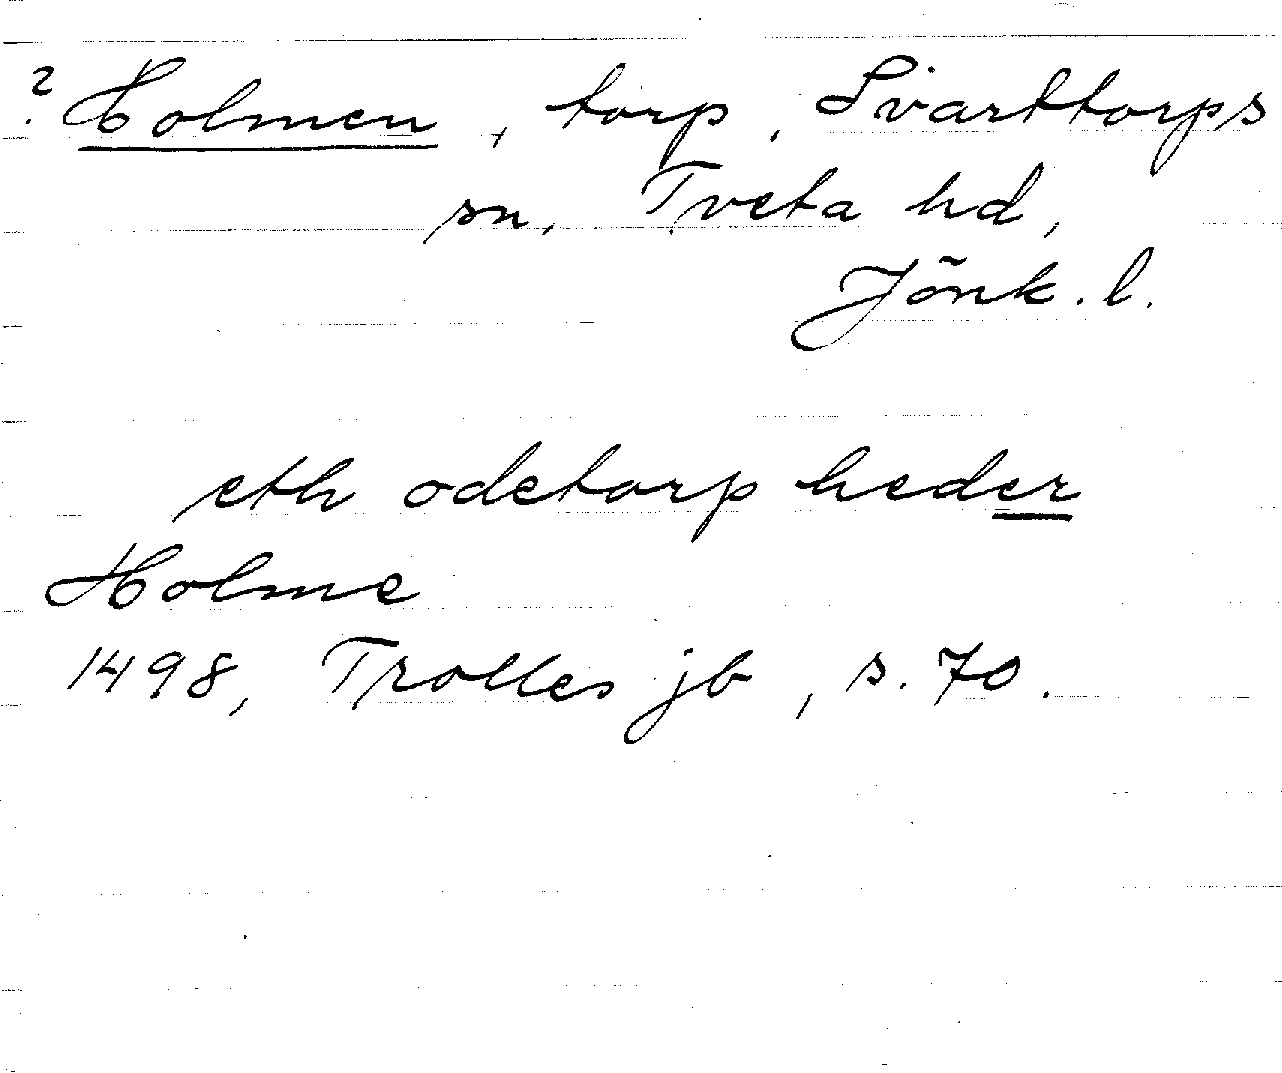 ? Holmen, torp, Svarttorps
sn, Tveta hd,
Jönk. l.
eth ödetorp heder
Holme
1498, Trolles jb, s. 70.